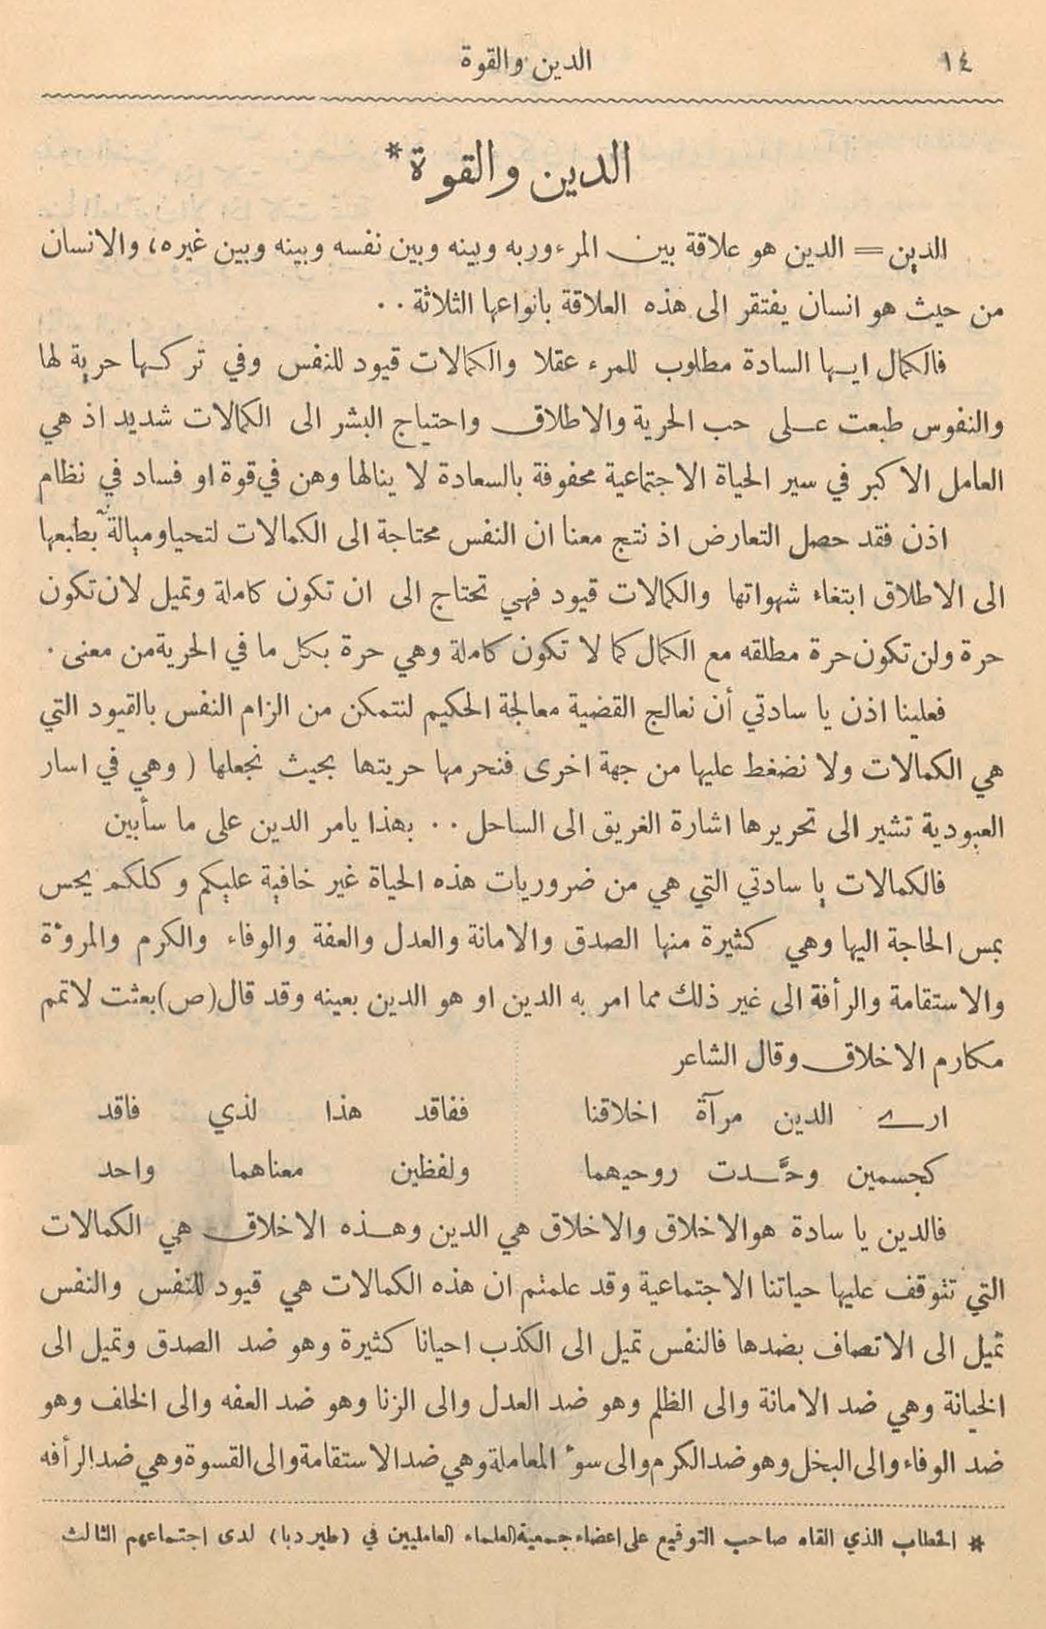 ١٤
الدين والقوة
الدين والقوة*
الدين = الدين هو علاقة بين المرء وربه وبينه وبين نفسه وبينه وبين غيره، والانسان
من حيث هو انسان يفتقر الى هذه العلاقة بانواعها الثلاثة ..
فالكمال ايها السادة مطلوب للمرء عقلا والكمالات قيود للنفس وفي تركها حرية لها
والنفوس طبعت على حب الحرية والاطلاق واحتياج البشر الى الكمالات شديد اذ هي
العامل الاكبر في سير الحياة الاجتماعية محفوفة بالسعادة لا ينالها وهن في قوة او فساد في نظام
اذن فقد حصل التعارض اذ نتج معنا ان النفس محتاجة الى الكمالات لتحيا وميالة بطبعها
الى الاطلاق ابتغاء شهواتها والكمالات قيود فهي تحتاج الى ان تكون كاملة وتميل لان تكون
حرة ولن تكون حرة مطلقه مع الكمال كما لا تكون كاملة وهي حرة بكل ما في الحرية من معنى .
فعلينا اذن يا سادتي أن نعالج القضية معالجة الحكيم لنتمكن من الزام النفس بالقيود التي
هي الكمالات ولا نضغط عليها من جهة اخرى فنحرمها حريتها بحيث نجعلها ( وهي في اسار
العبودية تشير الى تحريرها اشارة الغريق الى الساحل .. بهذا يامر الدين على ما سأبين
فالكمالات يا سادتي التي هي من ضروريات هذه الحياة غير خافية عليكم وكلكم يحس
بمس الحاجة اليها وهي كثيرة منها الصدق والامانة والعدل والعفة والوفاء والكرم والمروءة
والاستقامة والرأفة الى غير ذلك مما امر به الدين او هو الدين بعينه وقد قال (ص) بعثت لاتمم
مكارم الاخلاق وقال الشاعر
ارى الدين مرآة اخلاقنا ففاقد هذا لذي فاقد
كجسمين وحَّدت روحيهما ولفظين معناهما واحد
فالدين يا سادة هو الاخلاق والاخلاق هي الدين وهذه الاخلاق هي الكمالات
التي تتوقف عليها حياتنا الاجتماعية وقد علمتم ان هذه الكمالات هي قيود للنفس والنفس
تميل الى الاتصاف بضدها فالنفس تميل الى الكذب احيانا كثيرة وهو ضد الصدق وتميل الى
الخيانة وهي ضد الامانة والى الظلم وهو ضد العدل والى الزنا وهو ضد العفه والى الخلف وهو
ضد الوفاء والى البخل وهو ضد الكرم والى سوء المعاملة وهي ضد الاستقامة والى القسوة وهي ضد الرأفه
* الخطاب الذي القاه صاحب التوقيع على اعضاء جمعية العلماء العامليين في (طير دبا) لدى اجتماعهم الثالث